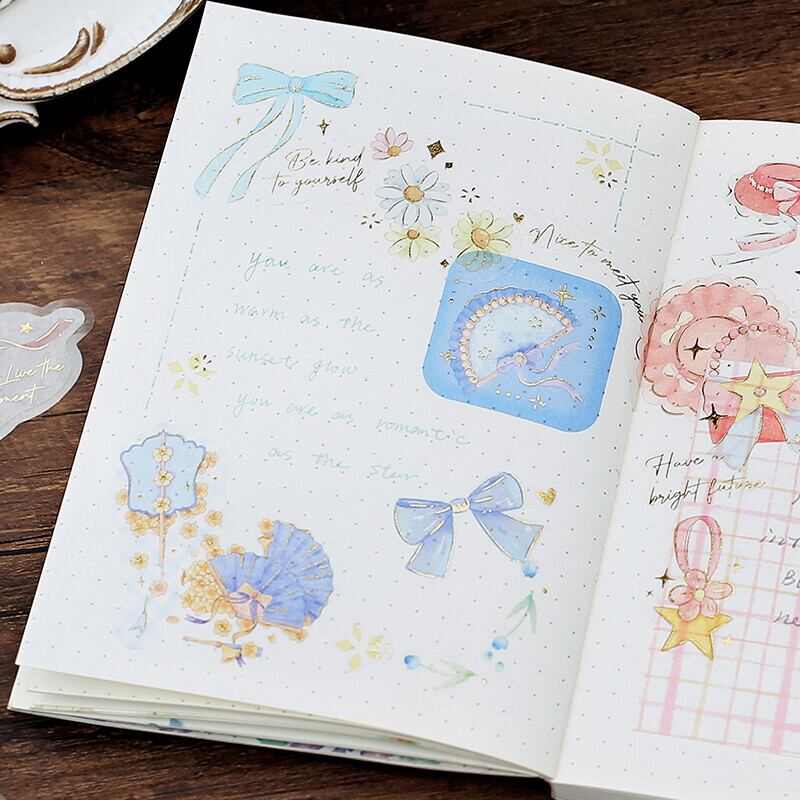 Be kind
to yourself
Nice to meet you
you are as
warm as the
sunset glow,
you are as romantic
as the star
Live the
moment
Have a
bright future